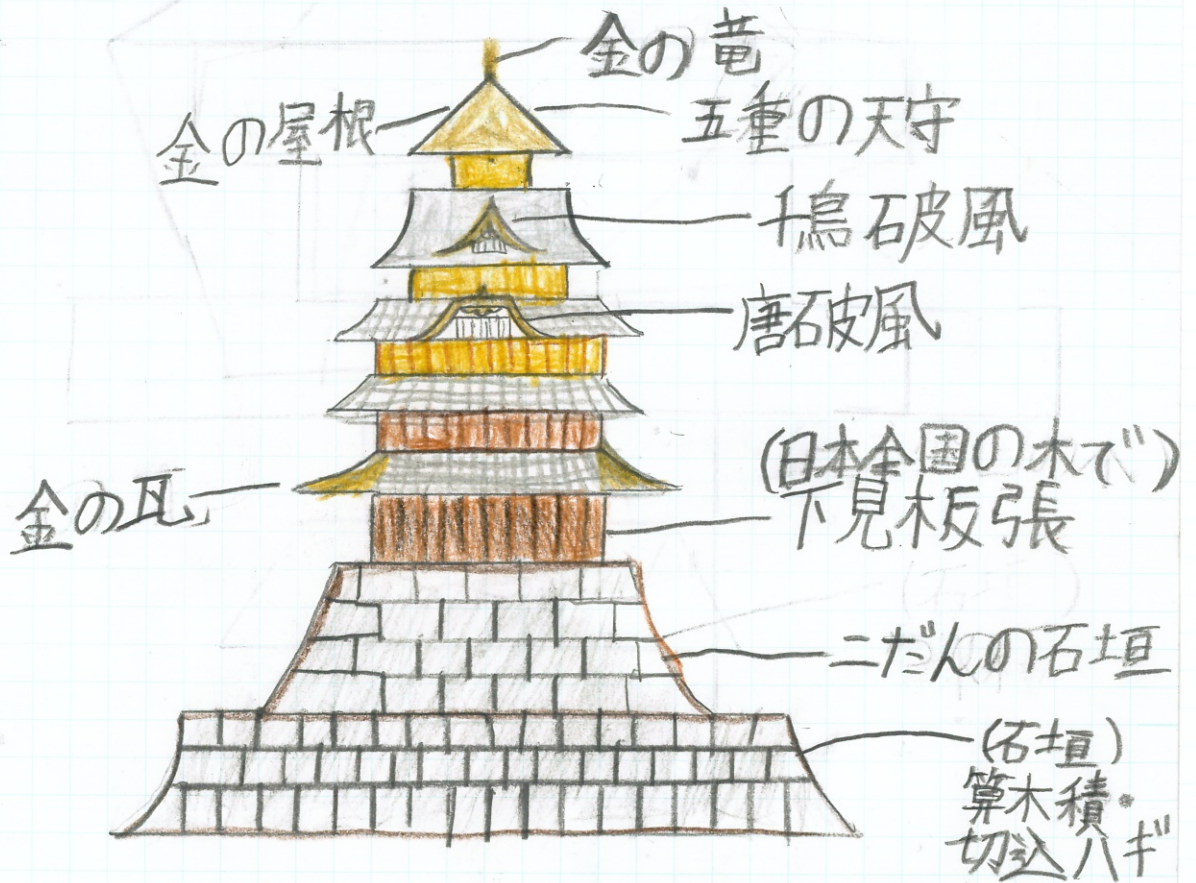 金の竜
金の屋根
五重の天守
千鳥破風
唐破風
(日本全国の木で)
下見板張
金の瓦
二だんの石垣
(石垣)
算木積・
切込ハギ